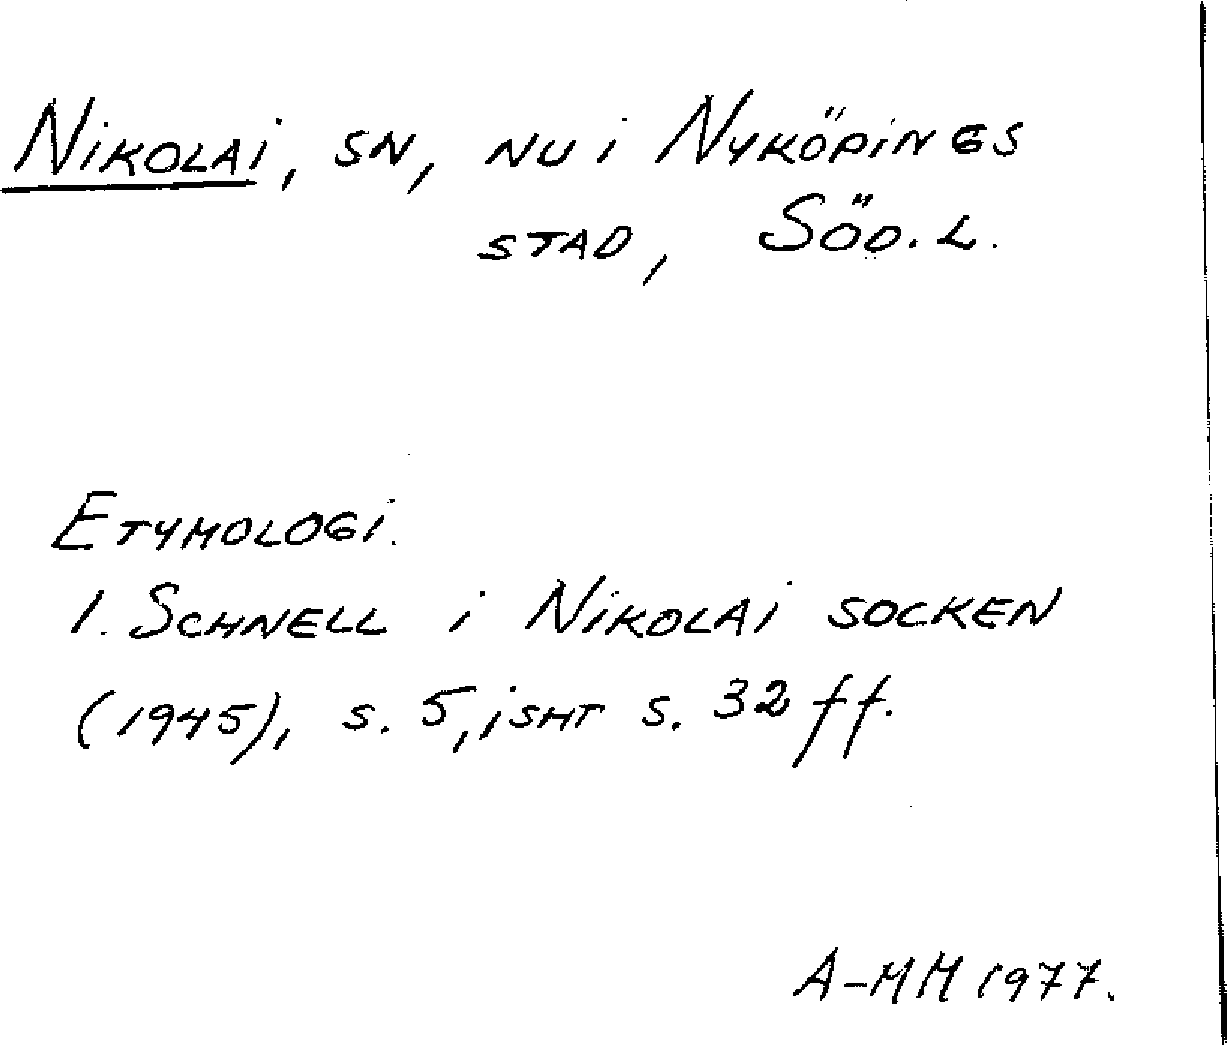 Nikolai, sn, nu i Nyköpings
stad, Söd. L.
Etymologi.
I. Schnell i Nikolai socken
(1945), s. 5, isht s. 32 ff.
A-MH 1977.